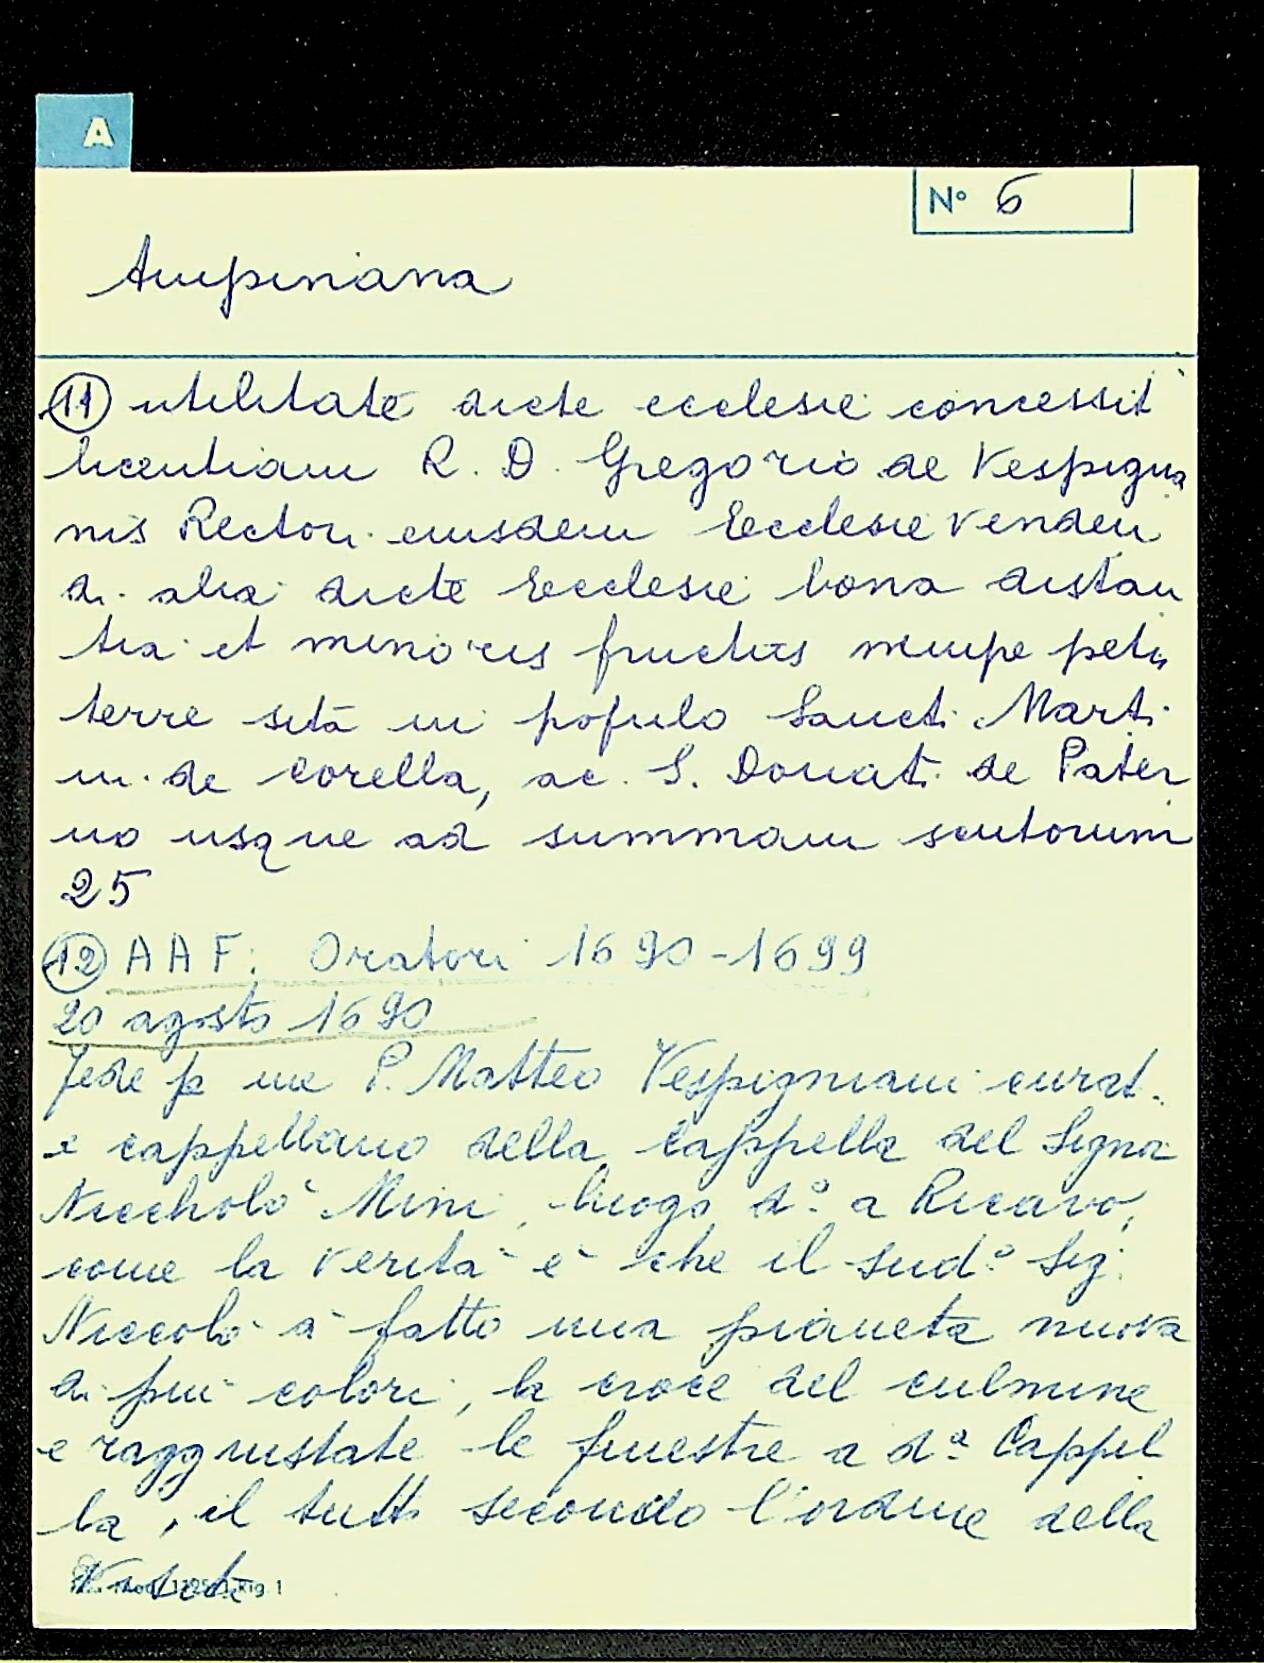 A
N° 6
Ampinana
11 utilitate dicte ecclesie concessit
licentiam R. D. Gregorio de Vespigna
nis Rectori eiusdem Ecclesie venden
di alia dicte Ecclesie bona distan
tia et minoris fructus nempe petii
terre sitā in populo Sancti Marti
ni de Corella, ac S. Donati de Pater
no usque ad summam scutorum
25
12 AAF: Oratori 1690-1699
20 agosto 1690
Fede p me P. Matteo Vespigniani curat.
e cappellano della Cappella del Signor
Niccholò Mini, luogo d.° a Ricavo,
come la verità è che il sud.° Sig.
Niccolò à fatto una pianeta nuova
di più colori, la croce del culmine
e raggiustate le finestre a d.ª Cappel
la, il tutto secondo l'ordine della
Visita